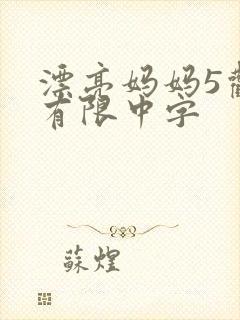 漂亮妈妈5
有限中字
蘇煌